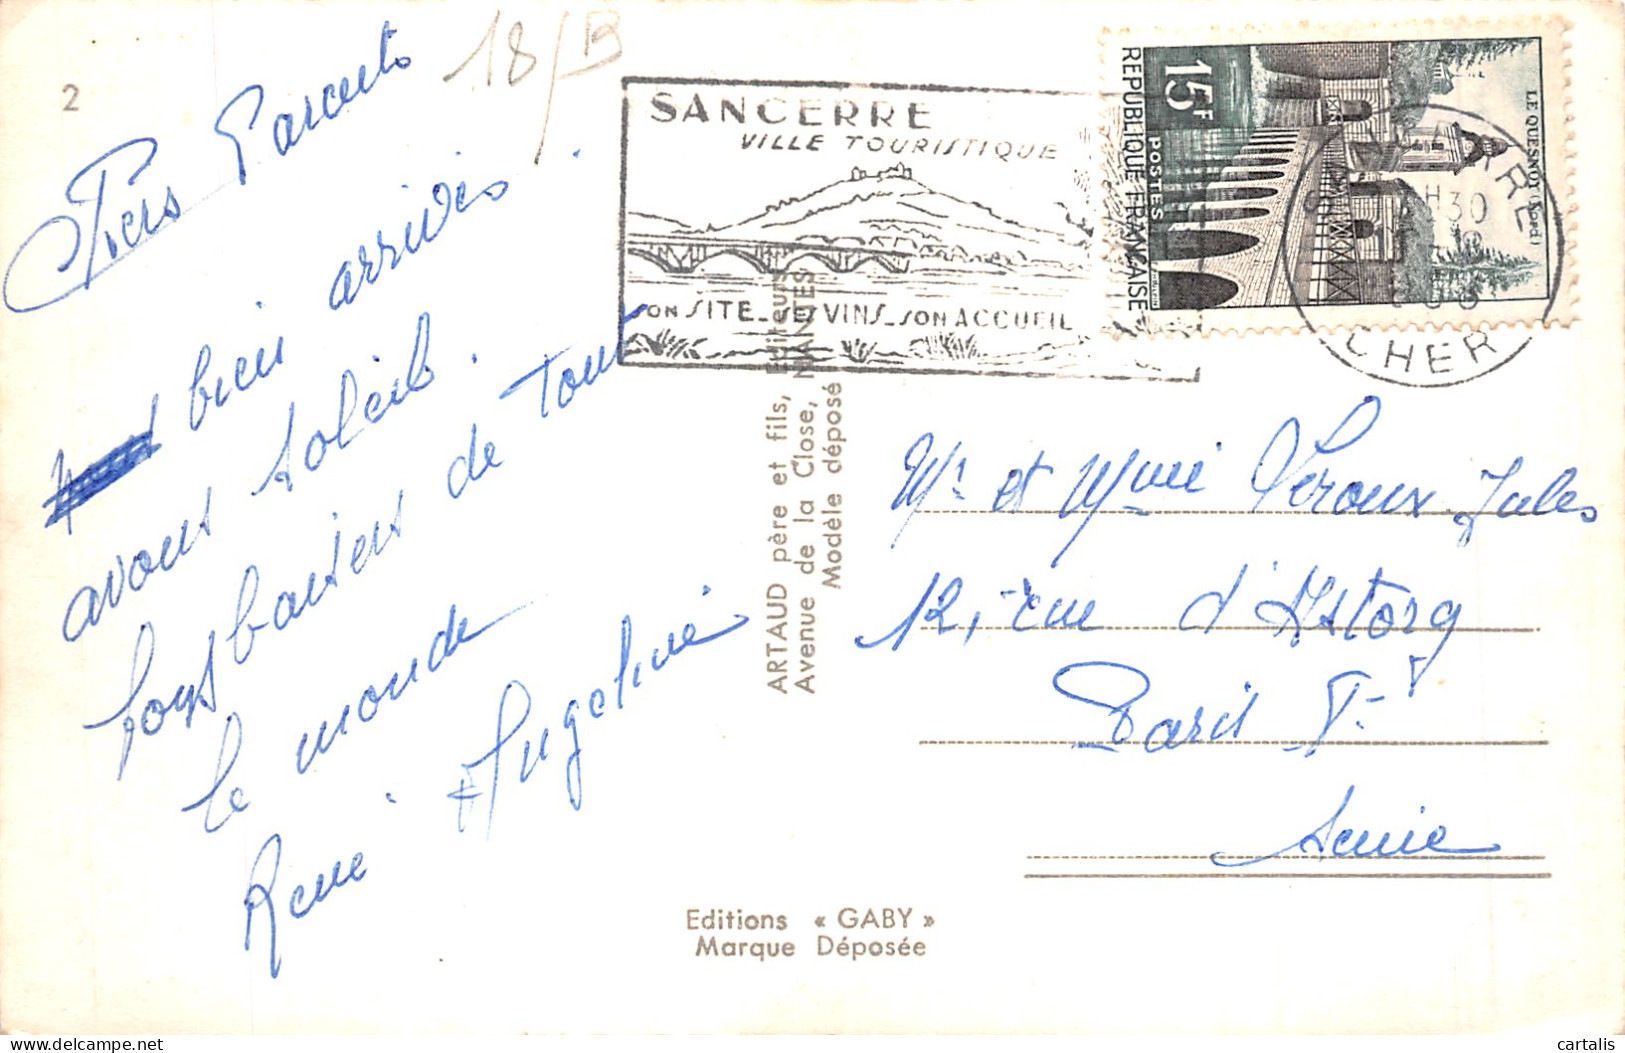 2
18/B
Chers Parents
bien arrivés.
avons soleil.
gros baisers de tour
le monde
René Angeline
SANCERRE
VILLE TOURISTIQUE
SON SITE_SES VINS_SON ACCUEIL
REPUBLIQUE FRANÇAISE
15F
POSTES
LE QUESNOY (Nord)
H30
CHER
ARTAUD père et fils, Editeurs
Avenue de la Close, NANTES
Modèle déposé
Mr et Mme Leroux Jules
12, rue d'Astorg
Paris
Seine
Editions « GABY »
Marque Déposée
cartalis
delcampe.net